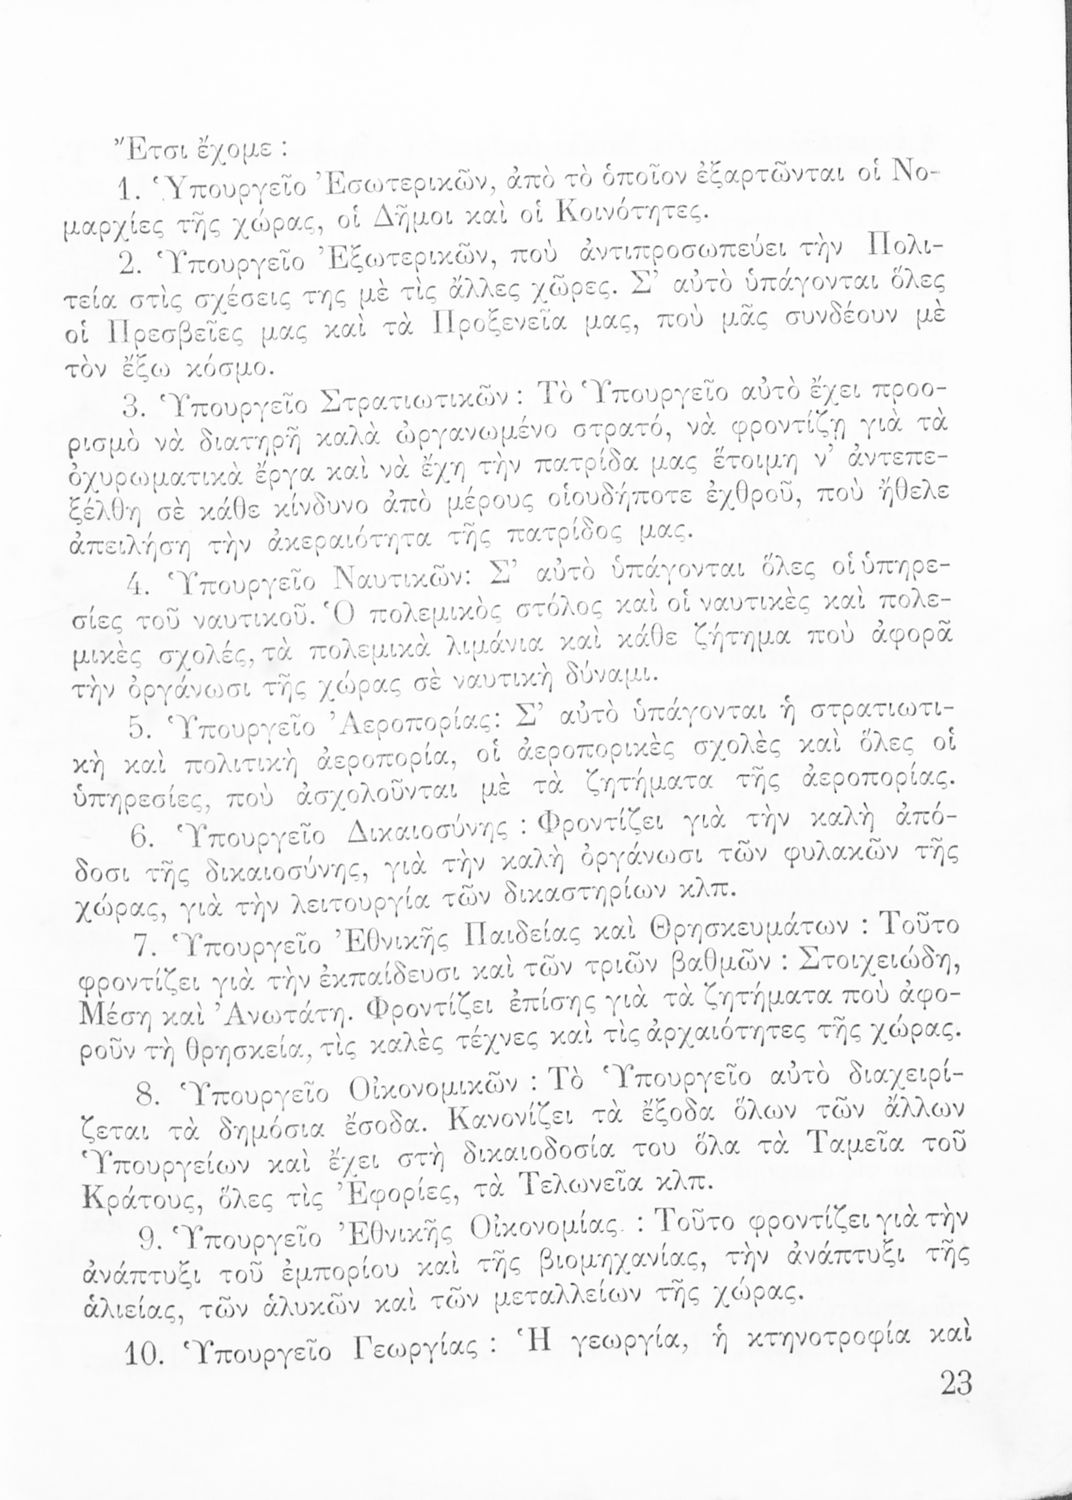 Ἔτσι ἔχομε :
1. Ὑπουργεῖο Ἐσωτερικῶν, ἀπὸ τὸ ὁποῖον ἐξαρτῶνται οἱ Νο-
μαρχίες τῆς χώρας, οἱ Δῆμοι καὶ οἱ Κοινότητες.
2. Ὑπουργεῖο Ἐξωτερικῶν, ποὺ ἀντιπροσωπεύει τὴν Πολι-
τεία στὶς σχέσεις της μὲ τὶς ἄλλες χῶρες. Σ’ αὐτὸ ὑπάγονται ὅλες
οἱ Πρεσβεῖες μας καὶ τὰ Προξενεῖα μας, ποὺ μᾶς συνδέουν μὲ
τὸν ἔξω κόσμο.
3. Ὑπουργεῖο Στρατιωτικῶν : Τὸ Ὑπουργεῖο αὐτὸ ἔχει προο-
ρισμὸ νὰ διατηρῆ καλὰ ὠργανωμένο στρατό, νὰ φροντίζη γιὰ τὰ
ὀχυρωματικὰ ἔργα καὶ νὰ ἔχη τὴν πατρίδα μας ἕτοιμη ν’ ἀντεπε-
ξέλθη σὲ κάθε κίνδυνο ἀπὸ μέρους οἱουδήποτε ἐχθροῦ, ποὺ ἤθελε
ἀπειλήση τὴν ἀκεραιότητα τῆς πατρίδος μας.
4. Ὑπουργεῖο Ναυτικῶν: Σ’ αὐτὸ ὑπάγονται ὅλες οἱ ὑπηρε-
σίες τοῦ ναυτικοῦ. Ὁ πολεμικὸς στόλος καὶ οἱ ναυτικὲς καὶ πολε-
μικὲς σχολές, τὰ πολεμικὰ λιμάνια καὶ κάθε ζήτημα ποὺ ἀφορᾶ
τὴν ὀργάνωσι τῆς χώρας σὲ ναυτικὴ δύναμι.
5. Ὑπουργεῖο Ἀεροπορίας: Σ’ αὐτὸ ὑπάγονται ἡ στρατιωτι-
κὴ καὶ πολιτικὴ ἀεροπορία, οἱ ἀεροπορικὲς σχολὲς καὶ ὅλες οἱ
ὑπηρεσίες, ποὺ ἀσχολοῦνται μὲ τὰ ζητήματα τῆς ἀεροπορίας.
6. Ὑπουργεῖο Δικαιοσύνης : Φροντίζει γιὰ τὴν καλὴ ἀπό-
δοσι τῆς δικαιοσύνης, γιὰ τὴν καλὴ ὀργάνωσι τῶν φυλακῶν τῆς
χώρας, γιὰ τὴν λειτουργία τῶν δικαστηρίων κλπ.
7. Ὑπουργεῖο Ἐθνικῆς Παιδείας καὶ Θρησκευμάτων : Τοῦτο
φροντίζει γιὰ τὴν ἐκπαίδευσι καὶ τῶν τριῶν βαθμῶν : Στοιχειώδη,
Μέση καὶ Ἀνωτάτη. Φροντίζει ἐπίσης γιὰ τὰ ζητήματα ποὺ ἀφο-
ροῦν τὴ θρησκεία, τὶς καλὲς τέχνες καὶ τὶς ἀρχαιότητες τῆς χώρας.
8. Ὑπουργεῖο Οἰκονομικῶν : Τὸ Ὑπουργεῖο αὐτὸ διαχειρί-
ζεται τὰ δημόσια ἔσοδα. Κανονίζει τὰ ἔξοδα ὅλων τῶν ἄλλων
Ὑπουργείων καὶ ἔχει στὴ δικαιοδοσία του ὅλα τὰ Ταμεῖα τοῦ
Κράτους, ὅλες τὶς Ἐφορίες, τὰ Τελωνεῖα κλπ.
9. Ὑπουργεῖο Ἐθνικῆς Οἰκονομίας. : Τοῦτο φροντίζει γιὰ τὴν
ἀνάπτυξι τοῦ ἐμπορίου καὶ τῆς βιομηχανίας, τὴν ἀνάπτυξι τῆς
ἁλιείας, τῶν ἁλυκῶν καὶ τῶν μεταλλείων τῆς χώρας.
10. Ὑπουργεῖο Γεωργίας : Ἡ γεωργία, ἡ κτηνοτροφία καὶ
23